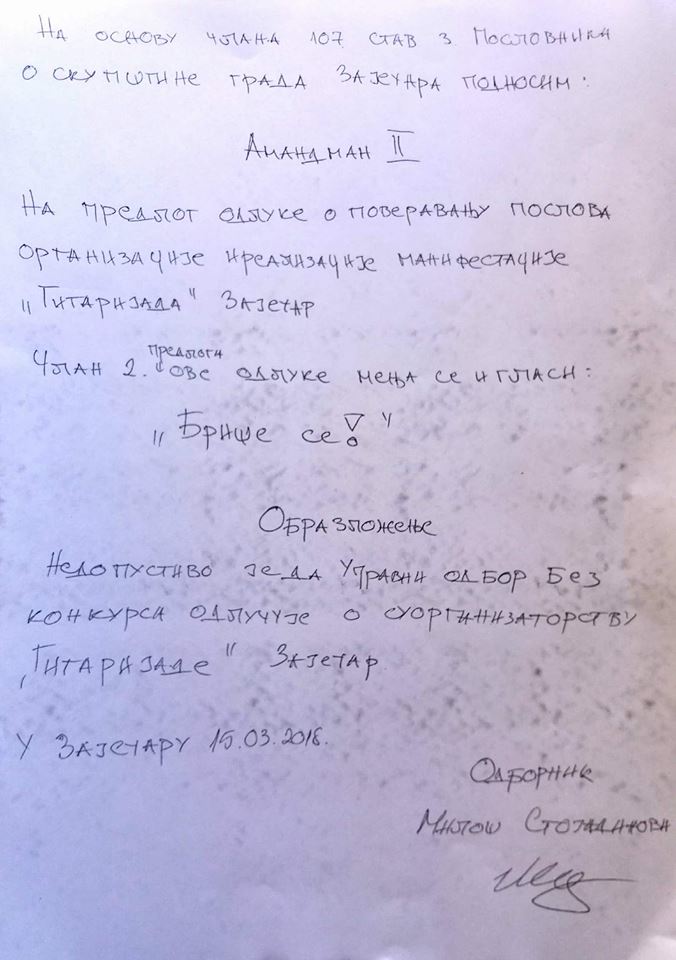 На основу члана 107 став 3 Пословника
о скупштине града Зајечара подносим:
Амандман II
На предлог одлуке о поверавању послова
организације и реализације манифестације
„Гитаријада" Зајечар
предлога
Члан 2. ове одлуке мења се и гласи:
„Брише се!"
Образложење
Недопустиво је да Управни одбор без
конкурса одлучује о суорганизаторству
„Гитаријаде" Зајечар
У Зајечару 15.03.2018.
Одборник
Милош